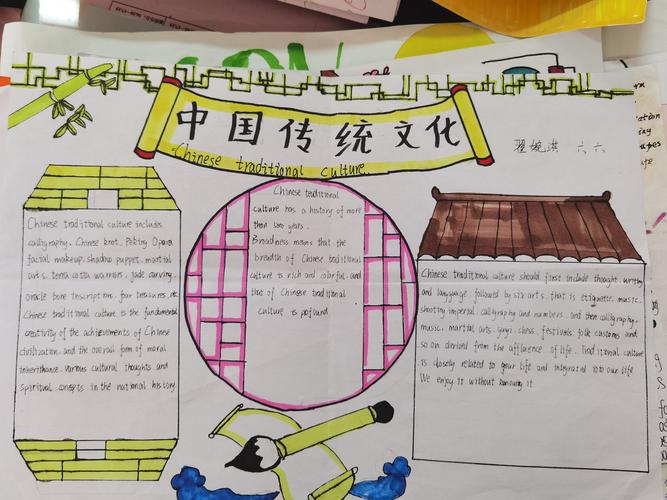 中国传统文化
Chinese traditional Culture.
翟婉洪 六六
Chinese traditional culture includes
calligraphy. Chinese knot. Peking Opera
facial makeup. shadow puppet. martial
arts. terra cotta warriors. jade carving.
oracle bone inscription. four treasures. etc
Chinese traditional culture is the fundamental
creativity of the achievements of Chinese
civilization. and the overall form of moral
inheritance. various cultural thoughts and
Spiritual consepts in the national history
Chinese traditional
culture has a history of more
than years.
Broadness means that the
breadth of Chinese traditional
culture is rich and colorful. and
that of Chinese traditional
culture is profound
Chinese traditional culture should first include thought. writing
and language followed by six arts. that is etiquette. music.
shooting imperial. calligraphy and numbers. and then calligraphy.
music. martial arts. chess. festivals. folk customs and
so on derived from the affluence of life. Traditional culture
is closely related to your life and integrated into our life
We enjoy it without it